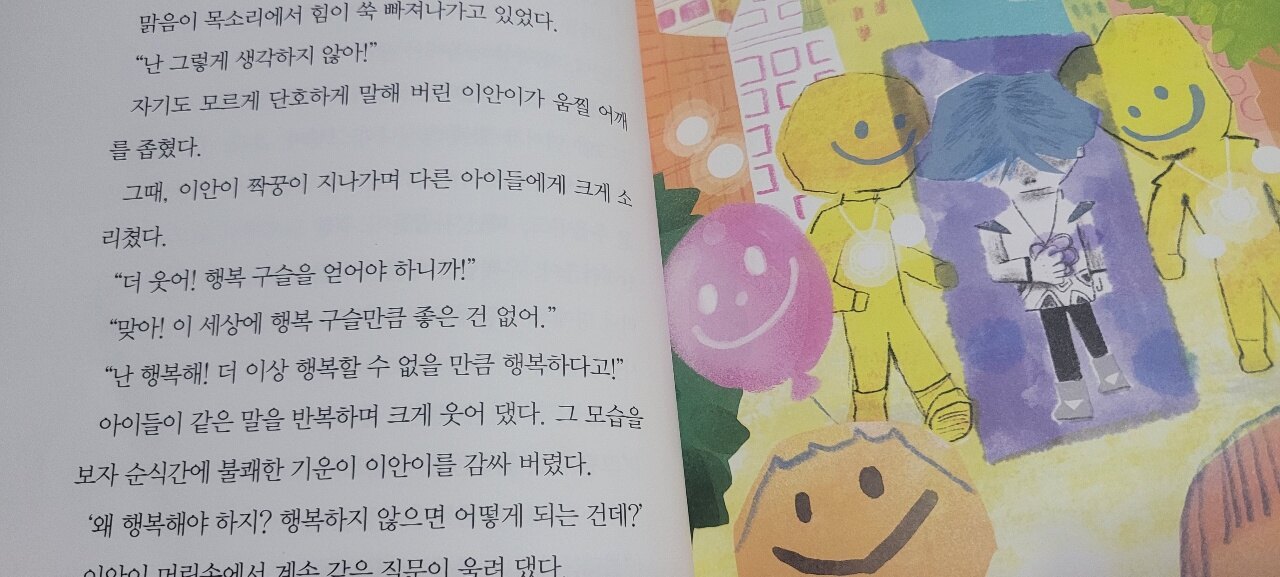 맑음이 목소리에서 힘이 쑥 빠져나가고 있었다.
“난 그렇게 생각하지 않아!”
자기도 모르게 단호하게 말해 버린 이안이가 움찔 어깨
를 좁혔다.
그때, 이안이 짝꿍이 지나가며 다른 아이들에게 크게 소
리쳤다.
“더 웃어! 행복 구슬을 얻어야 하니까!”
“맞아! 이 세상에 행복 구슬만큼 좋은 건 없어.”
“난 행복해! 더 이상 행복할 수 없을 만큼 행복하다고!”
아이들이 같은 말을 반복하며 크게 웃어 댔다. 그 모습을
보자 순식간에 불쾌한 기운이 이안이를 감싸 버렸다.
‘왜 행복해야 하지? 행복하지 않으면 어떻게 되는 건데?’
이안이 머릿속에서 계속 같은 질문이 울려 댔다.